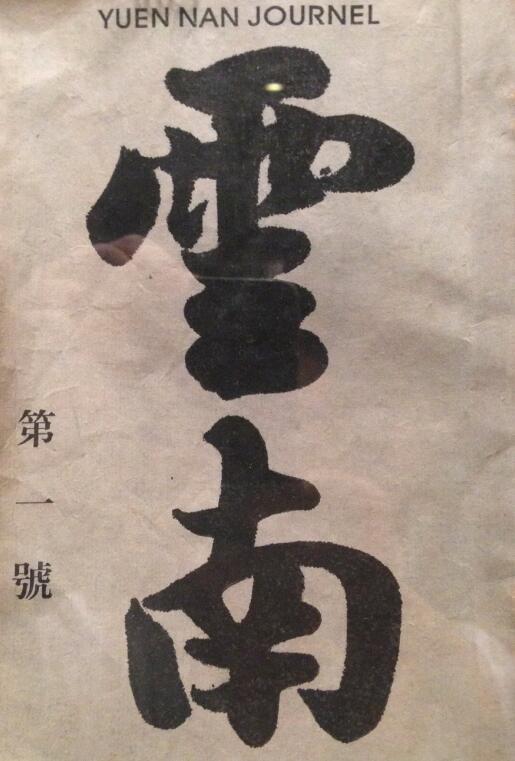 YUEN NAN JOURNEL
雲南
第一號